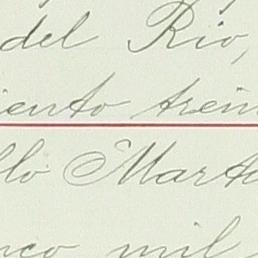 del Rio,
iento trein
llo Marta
nco mil